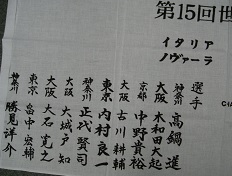 第15回世
イタリア
ノヴァーラ
選手
神奈川 高綱 進
大阪 木和田大起
京都 中野貴裕
大阪 古川耕輔
東京 内村良一
神奈川 正代賢司
大阪 大城戸知
大阪 大石寛之
東京 畠中宏輔
神奈川 勝見洋介